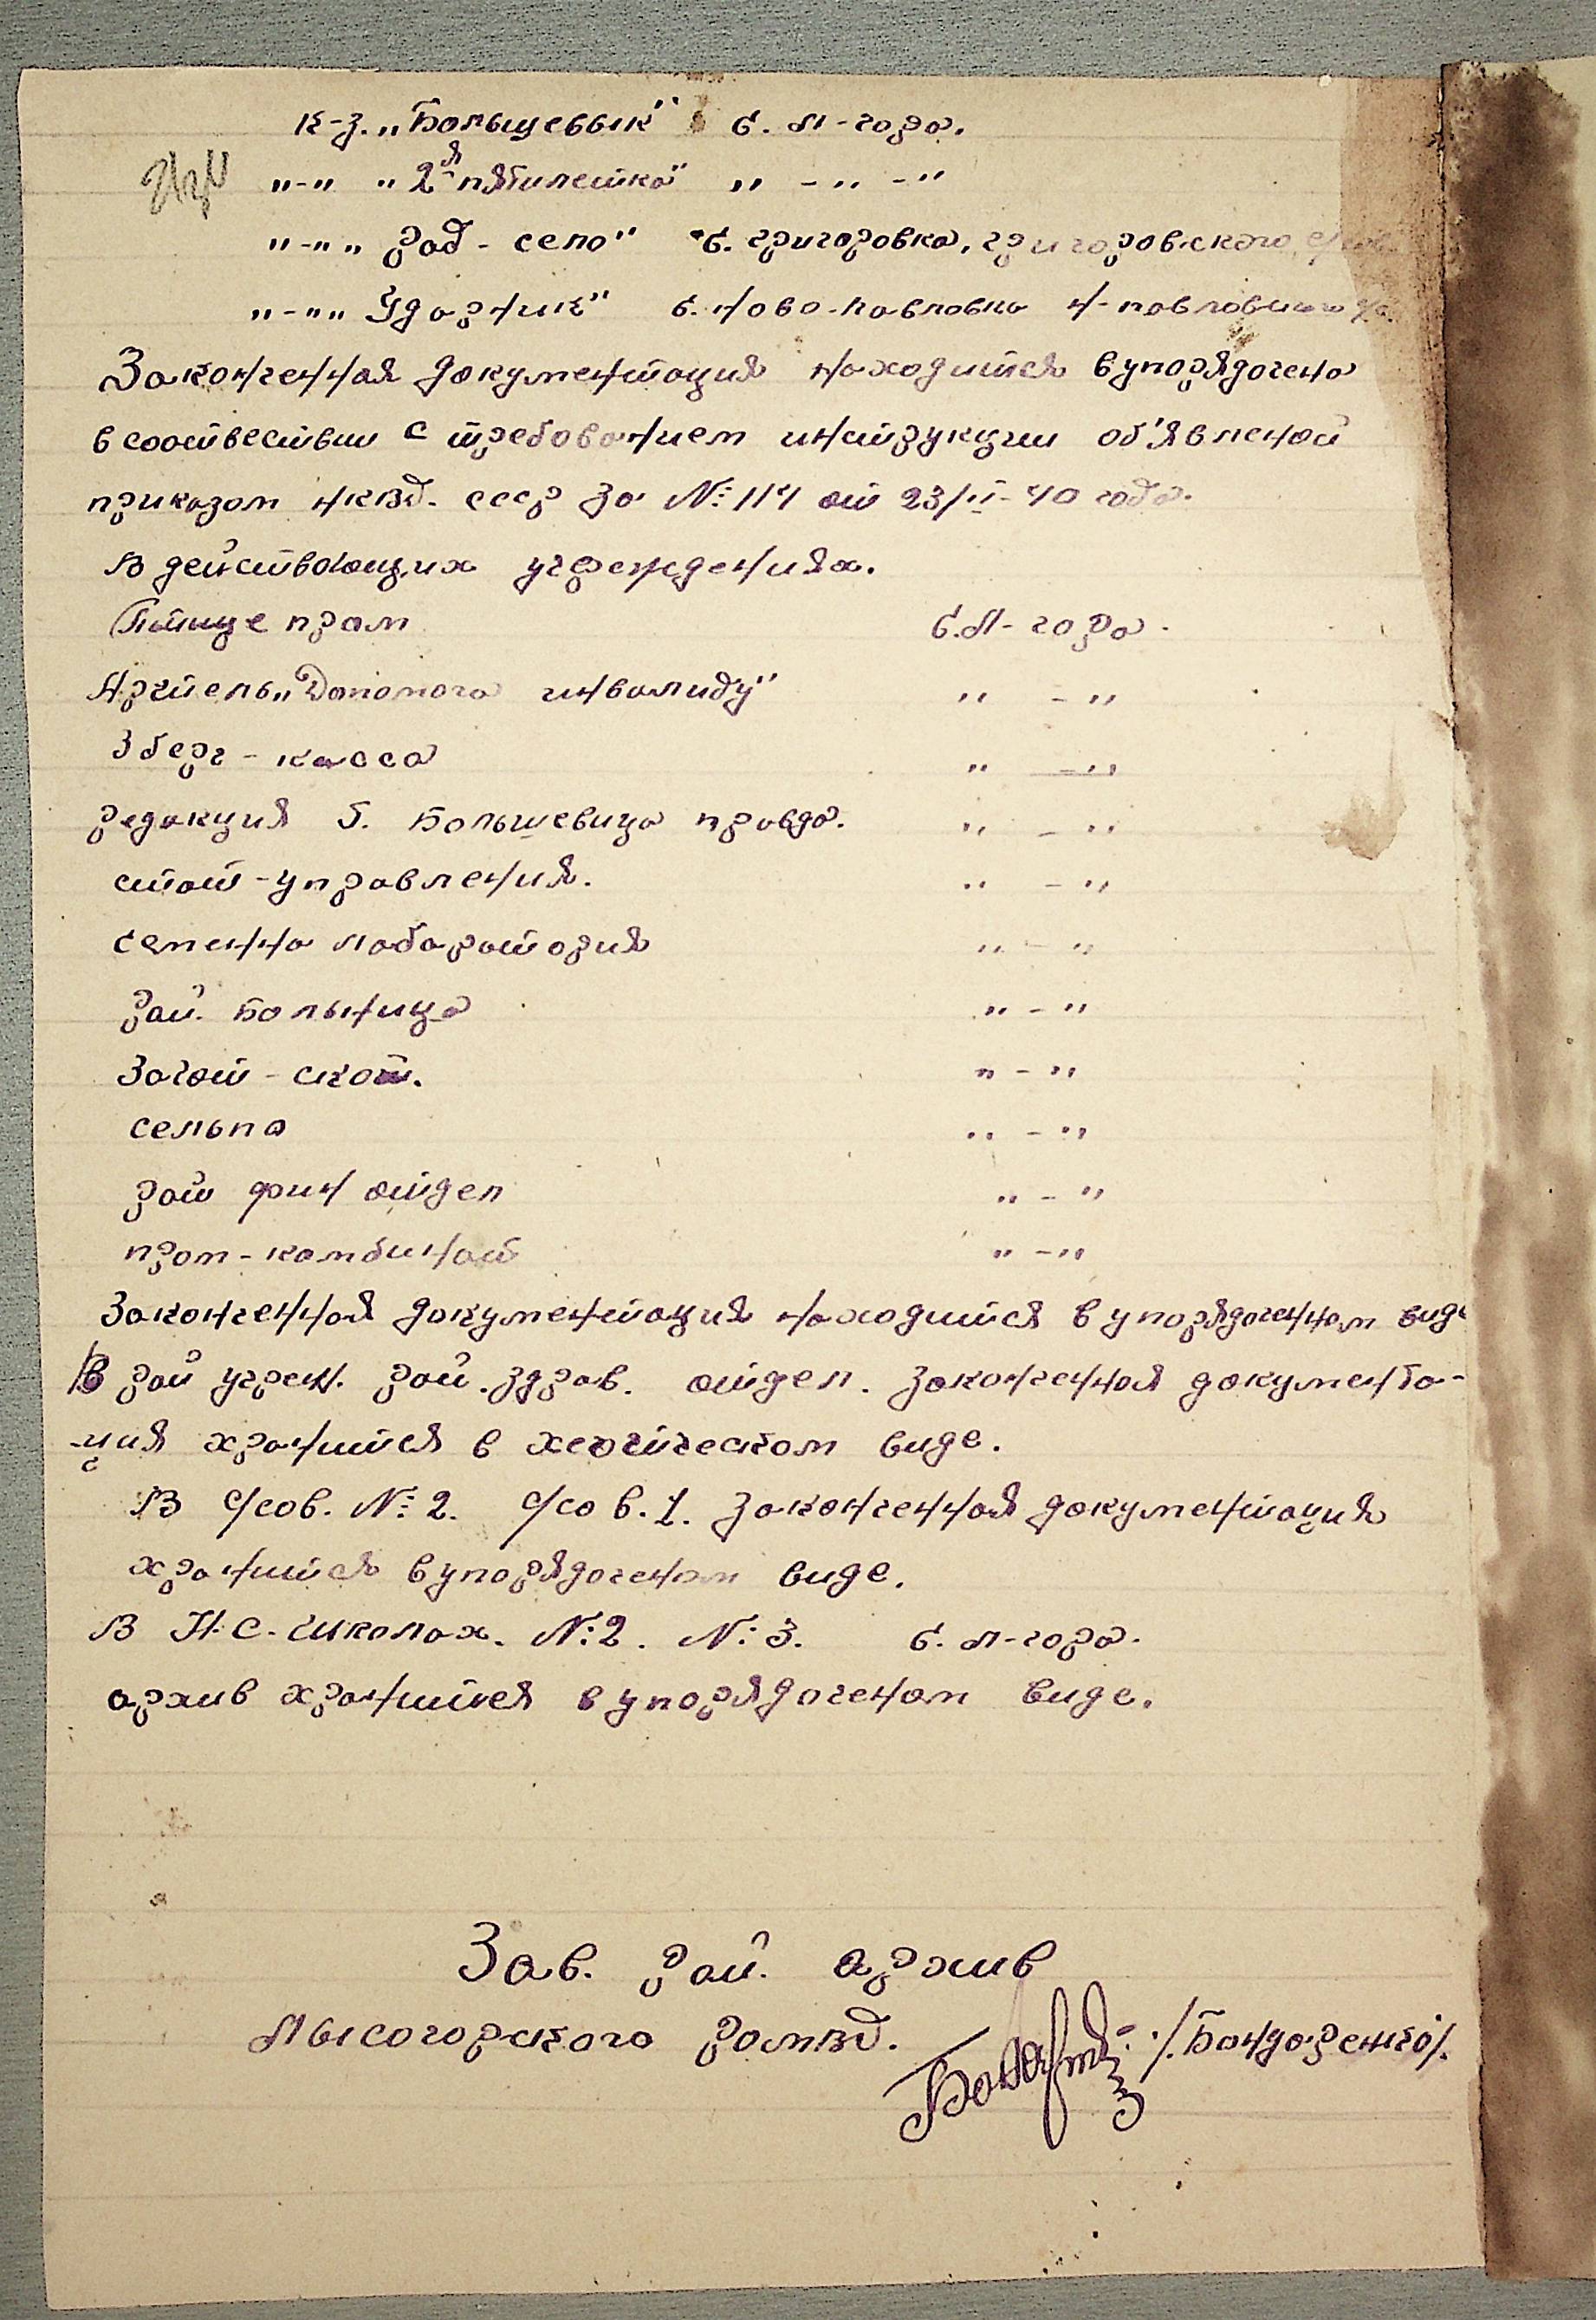 к-з. „Больщевык" с. Л-гора.
"-" „2я пятилетка" " - " - "
"-" „Рад-село" с. Григоровка, Григоровского с/сов
"-" „Ударник" с. Ново-Павловка Н-Павловского с/с.
Законченная документация находится в упорядочено
в соотвествии с требованием инструкции об'явленой
приказом НКВД. СССР за №: 114 от 23/II-40 года.
В действующих учреждениях.
Пище пром С.Л-гора.
Артель „Допомога инвалиду" " - "
Зберг-касса " - "
редакция б. Большевица правда. " - "
стат-управления. " - "
семенна лабаратория " - "
рай. Больница " - "
Загот-скот. " - "
сельпо " - "
рай фин отдел " - "
пром-комбинат " - "
Законченная документация находится в упорядоченном виде
В рай учреж. рай. здрав. отдел. законченная документа-
-ция хранится в хаотическом виде.
В с/сов. №: 2. с/сов. 1. законченная документация
хранится в упорядоченом виде.
В Н.С. Школах. №: 2. №: 3. с. Л-гора.
архив хранится в упорядоченом виде.
Зав. рай. архив
Лысогорского РОМВД. /. Бондаренко/.